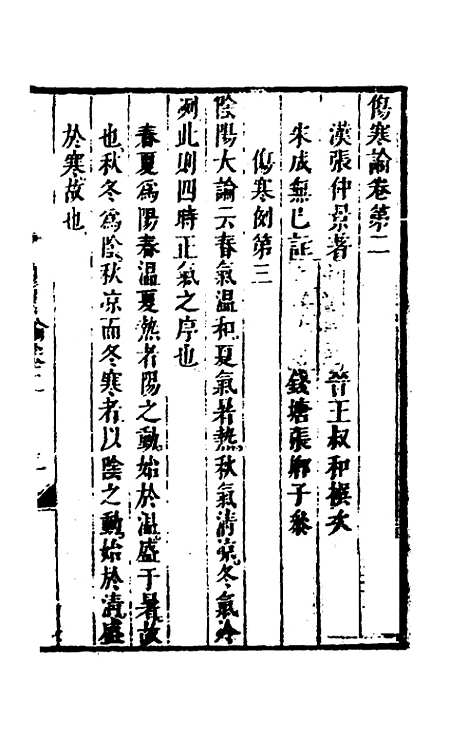 傷寒論卷第二
漢張仲景著 晉王叔和撰次
宋成無已註 錢塘張卿子參
傷寒例第三
陰陽大論云春氣溫和夏氣暑熱秋氣清凉冬氣冷
冽此則四時正氣之序也
春夏爲陽春温夏熱者陽之動始於温盛于暑故
也秋冬爲陰秋凉而冬寒者以陰之動始於清盛
於寒故也